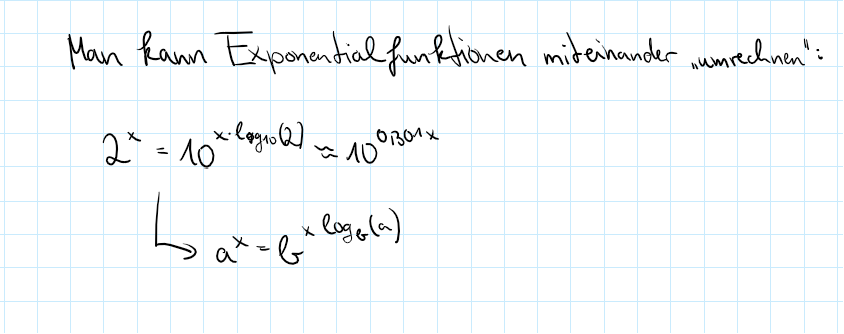 Man kann Exponentialfunktionen miteinander „umrechnen":
2^x = 10^{x·log₁₀(2)} ≈ 10^{0,301x}
a^x = b^{x log_b(a)}